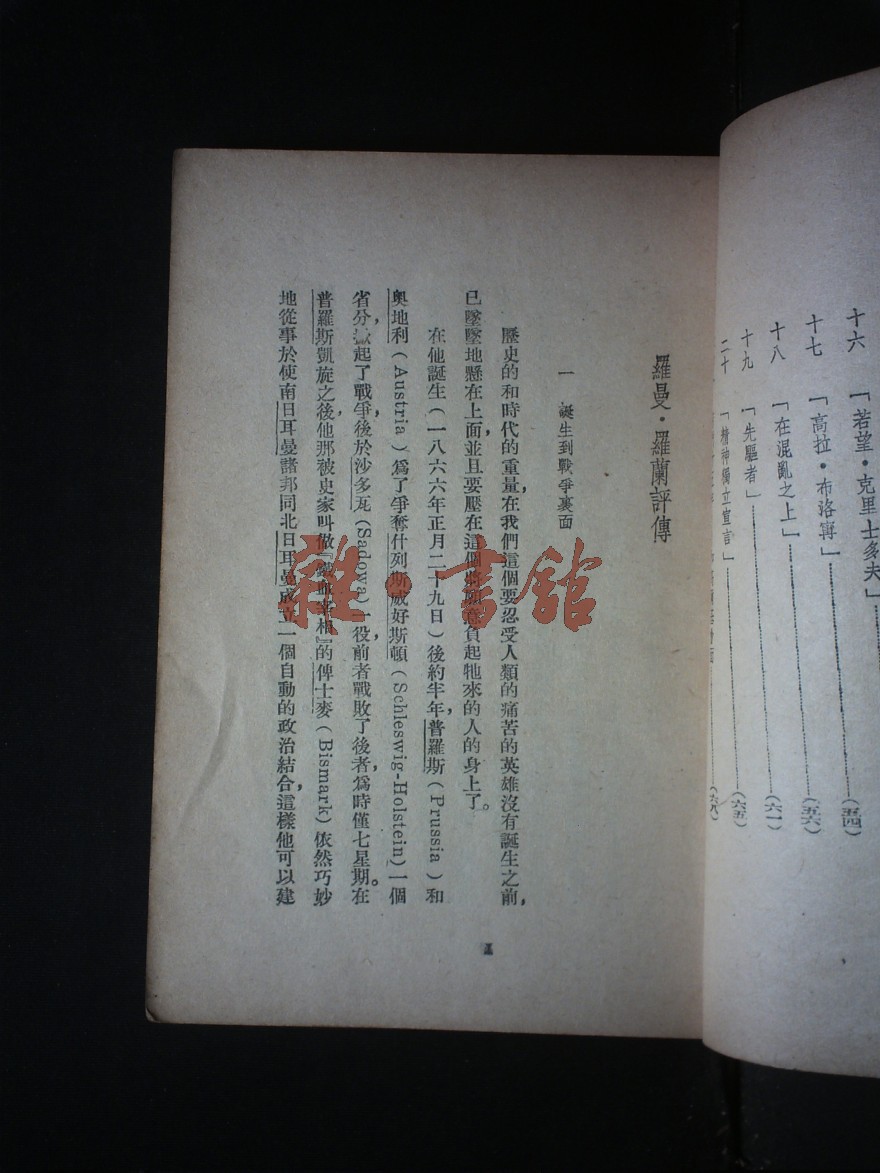 十六 「若望・克里士多夫」 (五四)
十七 「高拉・布洛窩」 (五六)
十八 「在混亂之上」 (六一)
十九 「先驅者」 (六五)
二十 「精神獨立宣言」 (六八)
羅曼・羅蘭評傳
一 誕生到戰爭裏面
歷史的和時代的重量,在我們這個要忍受人類的痛苦的英雄沒有誕生之前,
已墜墜地懸在上面,並且要壓在這個將願意負起牠來的人的身上了。
在他誕生(一八六六年正月二十九日)後約半年,普羅斯(Prussia)和
奧地利(Austria)爲了爭奪什列斯威好斯頓(Schleswig-Holstein)一個
省分,掀起了戰爭,後於沙多瓦(Sadowa)一役,前者戰敗了後者,爲時僅七星期。在
普羅斯凱旋之後,他那被史家叫做『鐵血宰相』的俾士麥(Bismark)依然巧妙
地從事於使南日耳曼諸邦同北日耳曼成立一個自動的政治結合,這樣他可以建
1
雜・書館